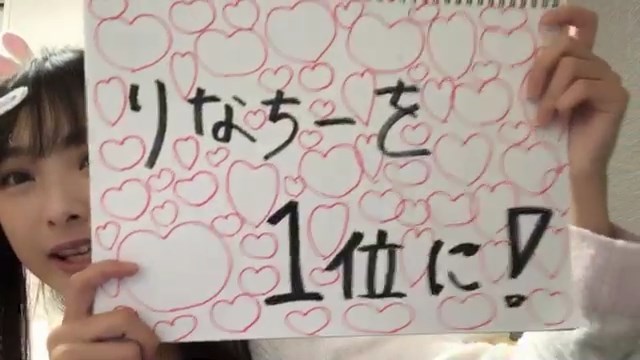 りなちーを
1位に!